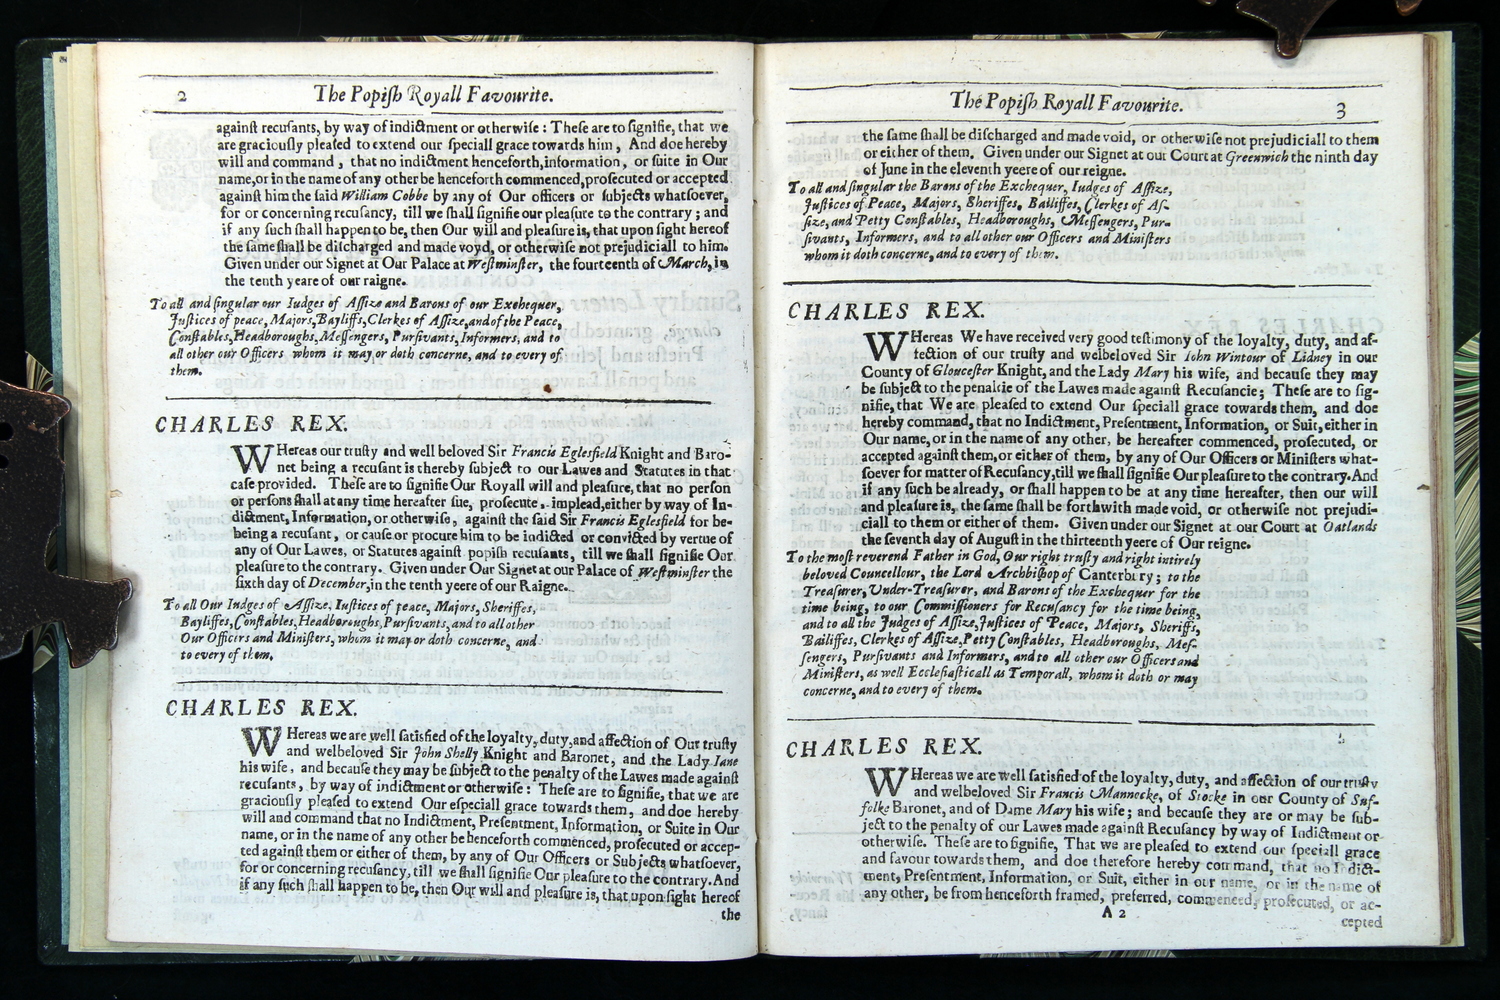 2
The Popiſh Royall Favourite.
againſt recuſants, by way of indictment or otherwiſe : Theſe are to ſignifie, that we
are graciouſly pleaſed to extend our ſpeciall grace towards him, And doe hereby
will and command, that no indictment henceforth, information, or ſuite in Our
name, or in the name of any other be henceforth commenced, proſecuted or accepted
againſt him the ſaid William Cobbe by any of Our officers or ſubjects whatſoever,
for or concerning recuſancy, till we ſhall ſignifie our pleaſure to the contrary ; and
if any ſuch ſhall happen to be, then Our will and pleaſure is, that upon ſight hereof
the ſame ſhall be diſcharged and made voyd, or otherwiſe not prejudiciall to him.
Given under our Signet at Our Palace at Weſtminſter, the fourteenth of March, in
the tenth yeare of our raigne.
To all and ſingular our Iudges of Aſſize and Barons of our Exchequer,
Juſtices of peace, Majors, Bayliffs, Clerkes of Aſſize, and of the Peace,
Conſtables, Headboroughs, Meſſengers, Purſivants, Informers, and to
all other our Officers whom it may or doth concerne, and to every of
them.
CHARLES REX.
WHereas our truſty and well beloved Sir Francis Egleſfield Knight and Baro-
net being a recuſant is thereby ſubject to our Lawes and Statutes in that
caſe provided. Theſe are to ſignifie Our Royall will and pleaſure, that no perſon
or perſons ſhall at any time hereafter ſue, proſecute, implead, either by way of In-
dictment, Information, or otherwiſe, againſt the ſaid Sir Francis Egleſfield for be-
being a recuſant, or cauſe or procure him to be indicted or convicted by vertue of
any of Our Lawes, or Statutes againſt popiſh recuſants, till we ſhall ſignifie Our
pleaſure to the contrary. Given under Our Signet at our Palace of Weſtminſter the
ſixth day of December, in the tenth yeere of our Raigne.
To all Our Iudges of Aſſize, Iuſtices of peace, Majors, Sheriffes,
Bayliffes, Conſtables, Headboroughs, Purſivants, and to all other
Our Officers and Miniſters, whom it may or doth concerne, and
to every of them.
CHARLES REX.
WHereas we are well ſatisfied of the loyalty, duty, and affection of Our truſty
and welbeloved Sir John Shelly Knight and Baronet, and the Lady Iane
his wife, and becauſe they may be ſubject to the penalty of the Lawes made againſt
recuſants, by way of indictment or otherwiſe : Theſe are to ſignifie, that we are
graciouſly pleaſed to extend Our eſpeciall grace towards them, and doe hereby
will and command that no Indictment, Preſentment, Information, or Suite in Our
name, or in the name of any other be henceforth commenced, proſecuted or accep-
ted againſt them or either of them, by any of Our Officers or Subjects whatſoever,
for or concerning recuſancy, till we ſhall ſignifie Our pleaſure to the contrary. And
if any ſuch ſhall happen to be, then Our will and pleaſure is, that upon ſight hereof
the
The Popiſh Royall Favourite.
3
the ſame ſhall be diſcharged and made void, or otherwiſe not prejudiciall to them
or either of them. Given under our Signet at our Court at Greenwich the ninth day
of June in the eleventh yeere of our reigne.
To all and ſingular the Barons of the Exchequer, Iudges of Aſſize,
Juſtices of Peace, Majors, Sheriffes, Bailiffes, Clerkes of Aſ-
ſize, and Petty Conſtables, Headboroughs, Meſſengers, Pur-
ſivants, Informers, and to all other our Officers and Miniſters
whom it doth concerne, and to every of them.
CHARLES REX.
WHereas We have received very good teſtimony of the loyalty, duty, and af-
fection of our truſty and welbeloved Sir Iohn Wintour of Lidney in our
County of Glouceſter Knight, and the Lady Mary his wife, and becauſe they may
be ſubject to the penaltie of the Lawes made againſt Recuſancie ; Theſe are to ſig-
nifie, that We are pleaſed to extend Our ſpeciall grace towards them, and doe
hereby command, that no Indictment, Preſentment, Information, or Suit, either in
Our name, or in the name of any other, be hereafter commenced, proſecuted, or
accepted againſt them, or either of them, by any of Our Officers or Miniſters what-
ſoever for matter of Recuſancy, till we ſhall ſignifie Our pleaſure to the contrary. And
if any ſuch be already, or ſhall happen to be at any time hereafter, then our will
and pleaſure is, the ſame ſhall be forthwith made void, or otherwiſe not prejudi-
ciall to them or either of them. Given under our Signet at our Court at Oatlands
the ſeventh day of Auguſt in the thirteenth yeere of Our reigne.
To the moſt reverend Father in God, Our right truſty and right intirely
beloved Councellour, the Lord Archbiſhop of Canterbury ; to the
Treaſurer, Under-Treaſurer, and Barons of the Exchequer for the
time being, to our Commiſſioners for Recuſancy for the time being,
and to all the Judges of Aſſize, Juſtices of Peace, Majors, Sheriffs,
Bailiffes, Clerkes of Aſſize, Petty Conſtables, Headboroughs, Meſ-
ſengers, Purſivants and Informers, and to all other our Officers and
Miniſters, as well Eccleſiaſticall as Temporall, whom it doth or may
concerne, and to every of them.
CHARLES REX.
WHereas we are well ſatisfied of the loyalty, duty, and affection of our truſty
and welbeloved Sir Francis Mannocke, of Stocke in our County of Suf-
folke Baronet, and of Dame Mary his wife ; and becauſe they are or may be ſub-
ject to the penalty of our Lawes made againſt Recuſancy by way of Indictment or
otherwiſe. Theſe are to ſignifie, That we are pleaſed to extend our ſpeciall grace
and favour towards them, and doe therefore hereby command, that no Indict-
ment, Preſentment, Information, or Suit, either in our name, or in the name of
any other, be from henceforth framed, preferred, commenced, proſecuted, or ac-
A 2
cepted